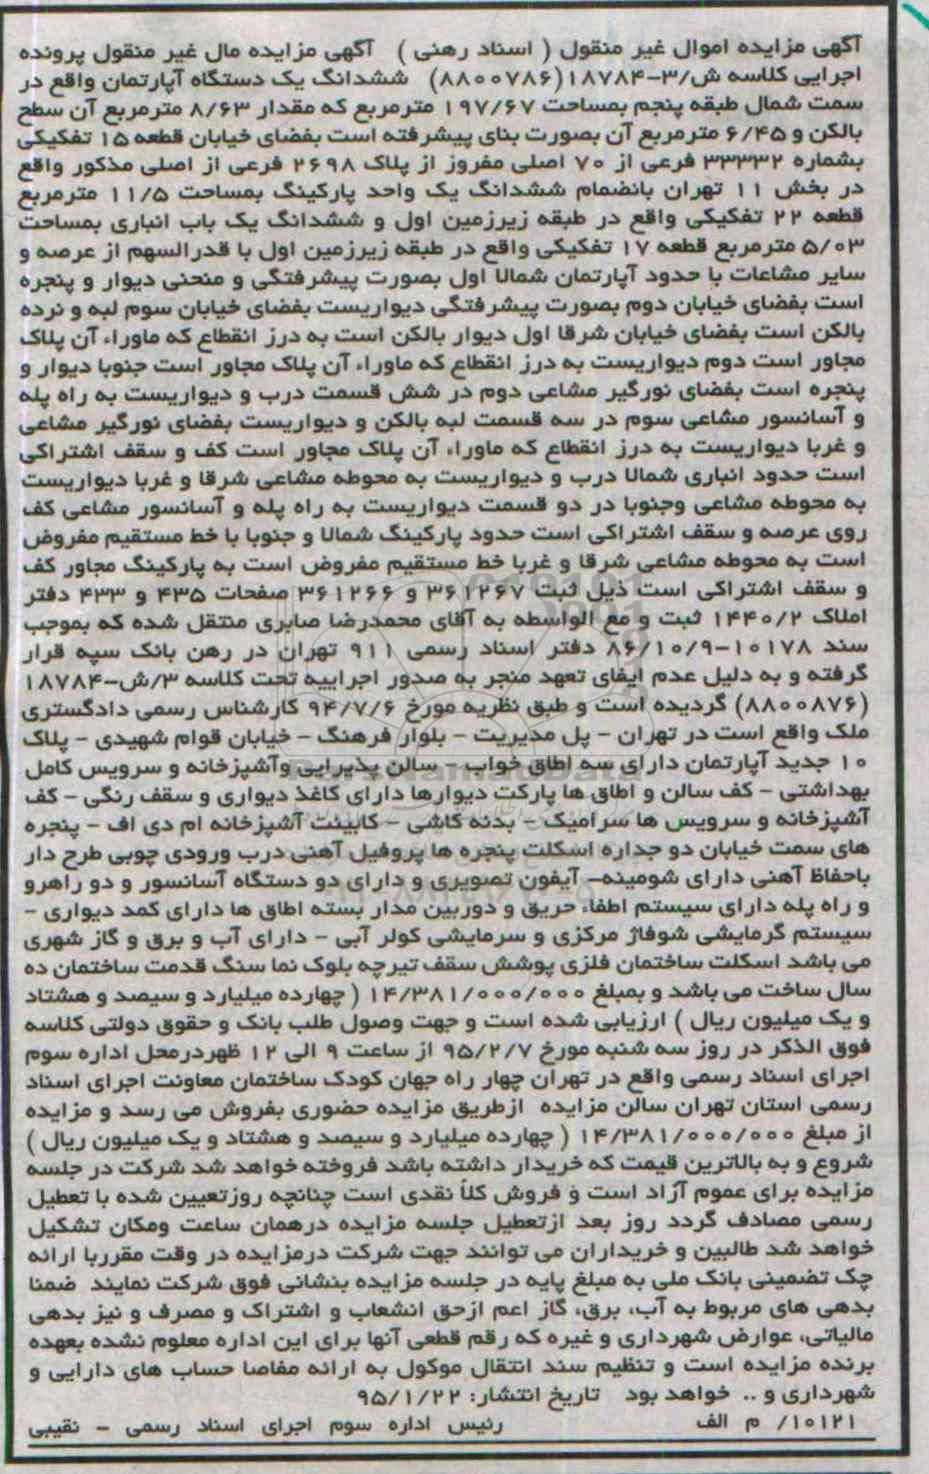 آگهی مزایده اموال غیر منقول ( اسناد رهنی ) آگهی مزایده مال غیر منقول پرونده
اجرایی کلاسه ش/۳-۱۸۷۸۴(۸۸۰۰۷۸۶) ششدانگ یک دستگاه آپارتمان واقع در
سمت شمال طبقه پنجم بمساحت ۱۹۷/۶۷ مترمربع که مقدار ۸/۶۳ مترمربع آن سطح
بالکن و ۶/۴۵ مترمربع آن بصورت بنای پیشرفته است بفضای خیابان قطعه ۱۵ تفکیکی
بشماره ۳۳۳۳۲ فرعی از ۷۰ اصلی مفروز از پلاک ۲۶۹۸ فرعی از اصلی مذکور واقع
در بخش ۱۱ تهران بانضمام ششدانگ یک واحد پارکینگ بمساحت ۱۱/۵ مترمربع
قطعه ۲۲ تفکیکی واقع در طبقه زیرزمین اول و ششدانگ یک باب انباری بمساحت
۵/۰۳ مترمربع قطعه ۱۷ تفکیکی واقع در طبقه زیرزمین اول با قدرالسهم از عرصه و
سایر مشاعات با حدود آپارتمان شمالا اول بصورت پیشرفتگی و منحنی دیوار و پنجره
است بفضای خیابان دوم بصورت پیشرفتگی دیواریست بفضای خیابان سوم لبه و نرده
بالکن است بفضای خیابان شرقا اول دیوار بالکن است به درز انقطاع که ماوراء آن پلاک
مجاور است دوم دیواریست به درز انقطاع که ماوراء آن پلاک مجاور است جنوبا دیوار و
پنجره است بفضای نورگیر مشاعی دوم در شش قسمت درب و دیواریست به راه پله
و آسانسور مشاعی سوم در سه قسمت لبه بالکن و دیواریست بفضای نورگیر مشاعی
و غربا دیواریست به درز انقطاع که ماوراء آن پلاک مجاور است کف و سقف اشتراکی
است حدود انباری شمالا درب و دیواریست به محوطه مشاعی شرقا و غربا دیواریست
به محوطه مشاعی وجنوبا در دو قسمت دیواریست به راه پله و آسانسور مشاعی کف
روی عرصه و سقف اشتراکی است حدود پارکینگ شمالا و جنوبا با خط مستقیم مفروض
است به محوطه مشاعی شرقا و غربا خط مستقیم مفروض است به پارکینگ مجاور کف
و سقف اشتراکی است ذیل ثبت ۳۶۱۲۶۷ و ۳۶۱۲۶۶ صفحات ۴۳۵ و ۴۳۳ دفتر
املاک ۱۴۴۰/۲ ثبت و مع الواسطه به آقای محمدرضا صابری منتقل شده که بموجب
سند ۱۰۱۷۸-۸۶/۱۰/۹ دفتر اسناد رسمی ۹۱۱ تهران در رهن بانک سپه قرار
گرفته و به دلیل عدم ایفای تعهد منجر به صدور اجراییه تحت کلاسه ۳/ش-۱۸۷۸۴
(۸۸۰۰۸۷۶) گردیده است و طبق نظریه مورخ ۹۴/۷/۶ کارشناس رسمی دادگستری
ملک واقع است در تهران - پل مدیریت - بلوار فرهنگ - خیابان قوام شهیدی - پلاک
۱۰ جدید آپارتمان دارای سه اطاق خواب - سالن پذیرایی وآشپزخانه و سرویس کامل
بهداشتی - کف سالن و اطاق ها پارکت دیوارها دارای کاغذ دیواری و سقف رنگی - کف
آشپزخانه و سرویس ها سرامیک - بدنه کاشی - کابینت آشپزخانه ام دی اف - پنجره
های سمت خیابان دو جداره اسکلت پنجره ها پروفیل آهنی درب ورودی چوبی طرح دار
باحفاظ آهنی دارای شومینه- آیفون تصویری و دارای دو دستگاه آسانسور و دو راهرو
و راه پله دارای سیستم اطفاء حریق و دوربین مدار بسته اطاق ها دارای کمد دیواری -
سیستم گرمایشی شوفاژ مرکزی و سرمایشی کولر آبی - دارای آب و برق و گاز شهری
می باشد اسکلت ساختمان فلزی پوشش سقف تیرچه بلوک نما سنگ قدمت ساختمان ده
سال ساخت می باشد و بمبلغ ۱۴/۳۸۱/۰۰۰/۰۰۰ ( چهارده میلیارد و سیصد و هشتاد
و یک میلیون ریال ) ارزیابی شده است و جهت وصول طلب بانک و حقوق دولتی کلاسه
فوق الذکر در روز سه شنبه مورخ ۹۵/۲/۷ از ساعت ۹ الی ۱۲ ظهردرمحل اداره سوم
اجرای اسناد رسمی واقع در تهران چهار راه جهان کودک ساختمان معاونت اجرای اسناد
رسمی استان تهران سالن مزایده ازطریق مزایده حضوری بفروش می رسد و مزایده
از مبلغ ۱۴/۳۸۱/۰۰۰/۰۰۰ ( چهارده میلیارد و سیصد و هشتاد و یک میلیون ریال )
شروع و به بالاترین قیمت که خریدار داشته باشد فروخته خواهد شد شرکت در جلسه
مزایده برای عموم آزاد است و فروش کلاً نقدی است چنانچه روزتعیین شده با تعطیل
رسمی مصادف گردد روز بعد ازتعطیل جلسه مزایده درهمان ساعت ومکان تشکیل
خواهد شد طالبین و خریداران می توانند جهت شرکت درمزایده در وقت مقرربا ارائه
چک تضمینی بانک ملی به مبلغ پایه در جلسه مزایده بنشانی فوق شرکت نمایند ضمنا
بدهی های مربوط به آب، برق، گاز اعم ازحق انشعاب و اشتراک و مصرف و نیز بدهی
مالیاتی، عوارض شهرداری و غیره که رقم قطعی آنها برای این اداره معلوم نشده بعهده
برنده مزایده است و تنظیم سند انتقال موکول به ارائه مفاصا حساب های دارایی و
شهرداری و .. خواهد بود تاریخ انتشار: ۹۵/۱/۲۲
۱۰۱۲۱/ م الف رئیس اداره سوم اجرای اسناد رسمی - نقیبی
ParsNamadData